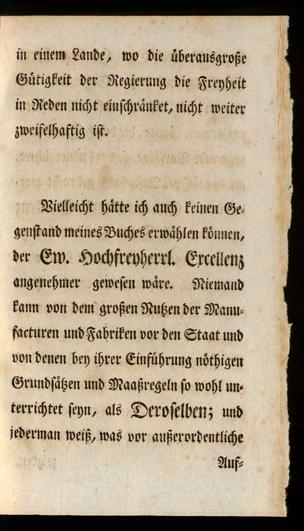 in einem Lande, wo die überausgroße
Gütigkeit der Regierung die Freyheit
in Reden nicht einschränket, nicht weiter
zweifelhaftig ist.
Vielleicht hätte ich auch keinen Ge-
genstand meines Buches erwählen können,
der Ew. Hochfreyherrl. Excellenz
angenehmer gewesen wäre. Niemand
kann von dem großen Nutzen der Manu-
facturen und Fabriken vor den Staat und
von denen bey ihrer Einführung nöthigen
Grundsätzen und Maaßregeln so wohl un-
terrichtet seyn, als Deroselben; und
jederman weiß, was vor außerordentliche
Auf-